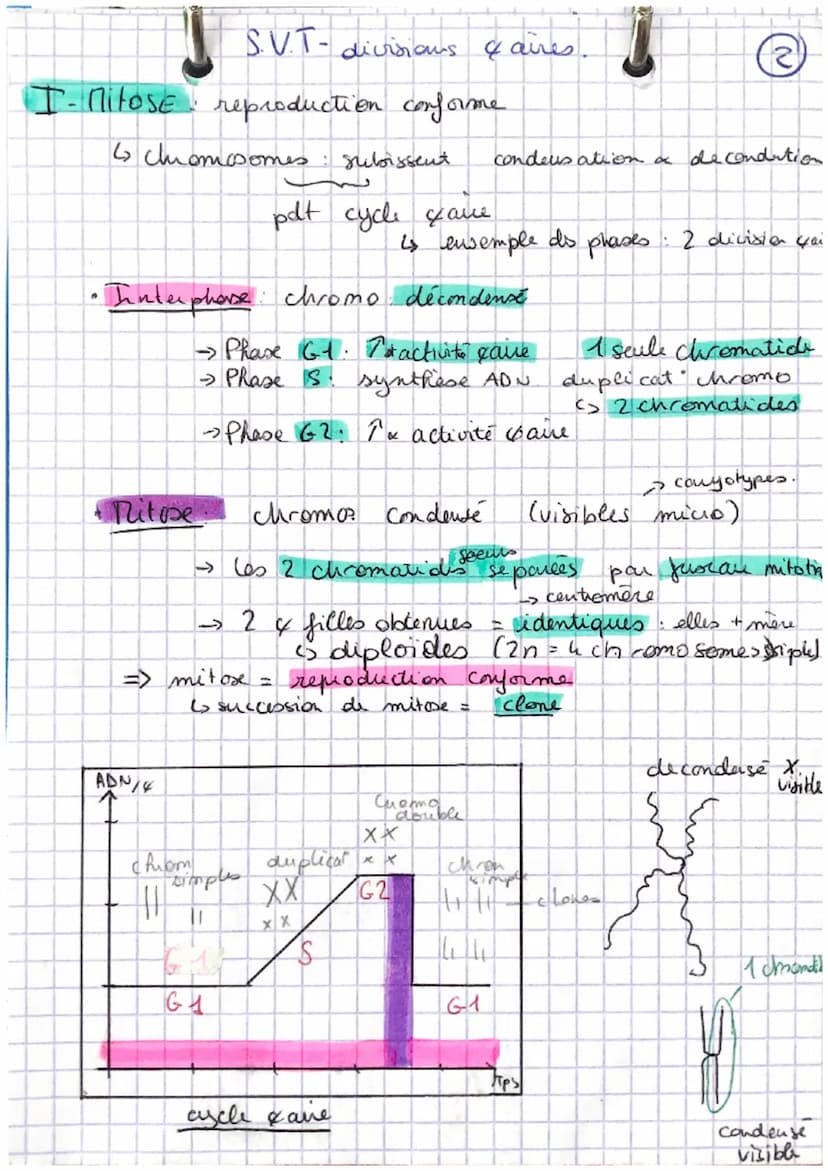 S.V.T - divisions ¢aires.
2
I - Mitose : reproduction conforme
↳ chromosomes : subissent condensation &
pdt cycle ¢aire
↳ ensemple des phases : 2 division
• Interphase : chromo décondensé
→ Phase G1 : ↑ activité ¢aire 1 seule chromatide
→ Phase S : synthèse ADN duplicat° chromo
↳ 2 chromatides
→ Phase G2 : ↑ activité ¢aire
→ caryotypes.
• Mitose : chromo condensé (visibles micro)
→ les 2 chromatides soeurs séparées par fuseau
→ centromère
→ 2 ¢ filles obtenues = identiques : elles + mère
↳ diploïdes (2n = 4 chromosomes simples)
=> mitose = reproduction conforme
↳ succession de mitose = clone
ADN/¢
chrom simples
duplicat°
chromo double
chrom simple
clones
G1
G1
S
G2
G1
Tps
cycle ¢aire
decondensé X visible
condensé visible